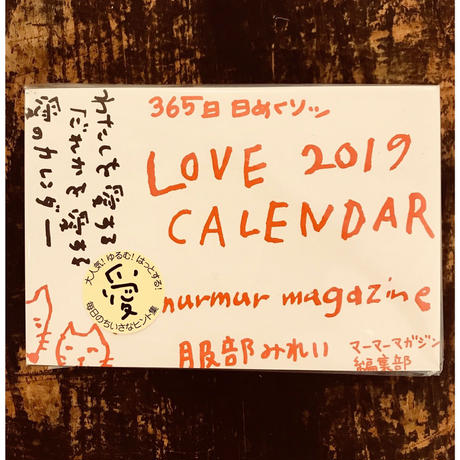 365日 日めくりッ
LOVE 2019
CALENDAR
わたしを愛する
「だれかを愛する
愛のカレンダー
大人気!ゆるむ!はっとする!
愛
毎日のちいさなヒント集
murmur magazine
服部みれい
マーマーマガジン
編集部